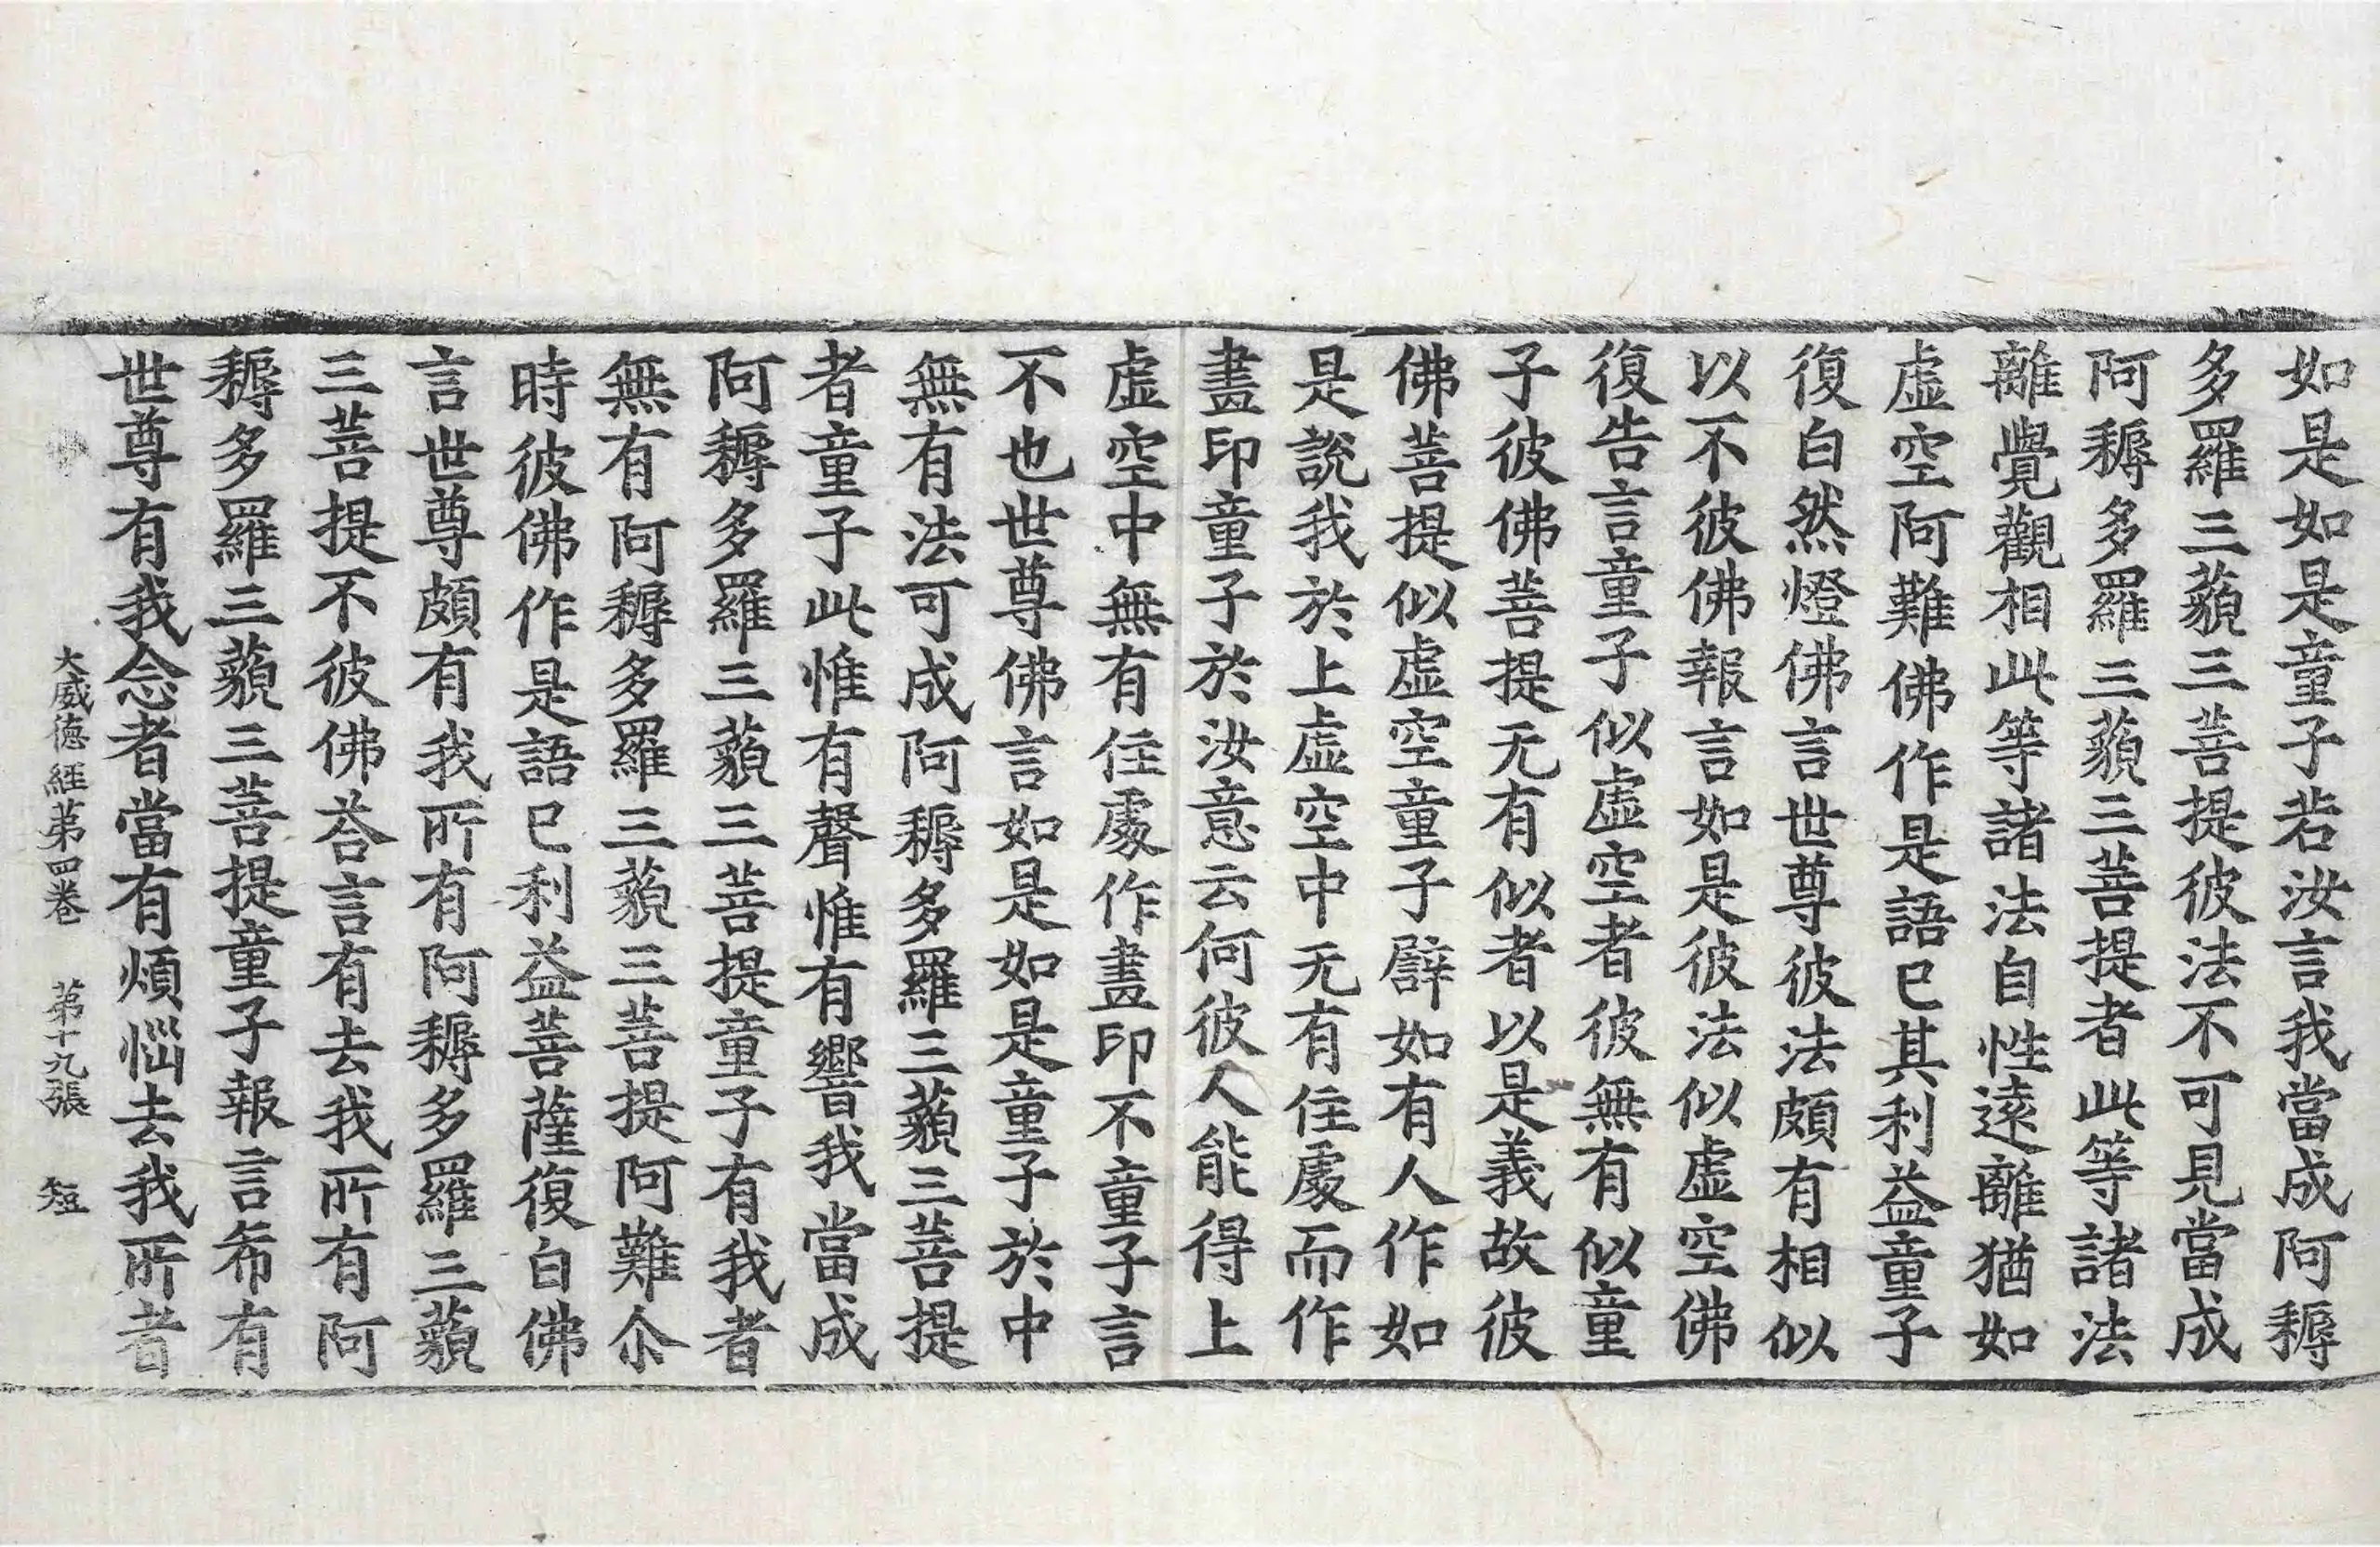 如是如是童子若汝言我當成阿耨
多羅三藐三菩提彼法不可見當成
阿耨多羅三藐三菩提者此等諸法
離覺觀相此等諸法自性遠離猶如
虛空阿難佛作是語已其利益童子
復白然燈佛言世尊彼法頗有相似
以不彼佛報言如是彼法似虛空佛
復告言童子似虛空者彼無有似童
子彼佛菩提无有似者以是義故彼
佛菩提似虛空童子譬如有人作如
是說我於上虛空中无有住處而作
畫印童子於汝意云何彼人能得上
虛空中無有住處作畫印不童子言
不也世尊佛言如是如是童子於中
無有法可成阿耨多羅三藐三菩提
者童子此惟有聲惟有響我當成
阿耨多羅三藐三菩提童子有我者
無有阿耨多羅三藐三菩提阿難尒
時彼佛作是語已利益菩薩復白佛
言世尊頗有我所有阿耨多羅三藐
三菩提不彼佛荅言有去我所有阿
耨多羅三藐三菩提童子報言希有
世尊有我念者當有煩惱去我所者
大威德經第四卷 第十九張 短